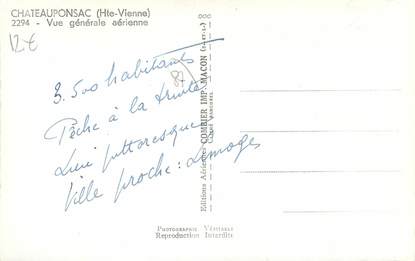 CHATEAUPONSAC (Hte-Vienne)
2294 - Vue générale aérienne
12 €
87
3.500 habitants
Pêche à la truite
Lieu pittoresque
Ville proche : Limoges
Editions Aériennes COMBIER IMP. MACON (S.-et-L.)
PHOTOGRAPHIE VÉRITABLE
Reproduction Interdite